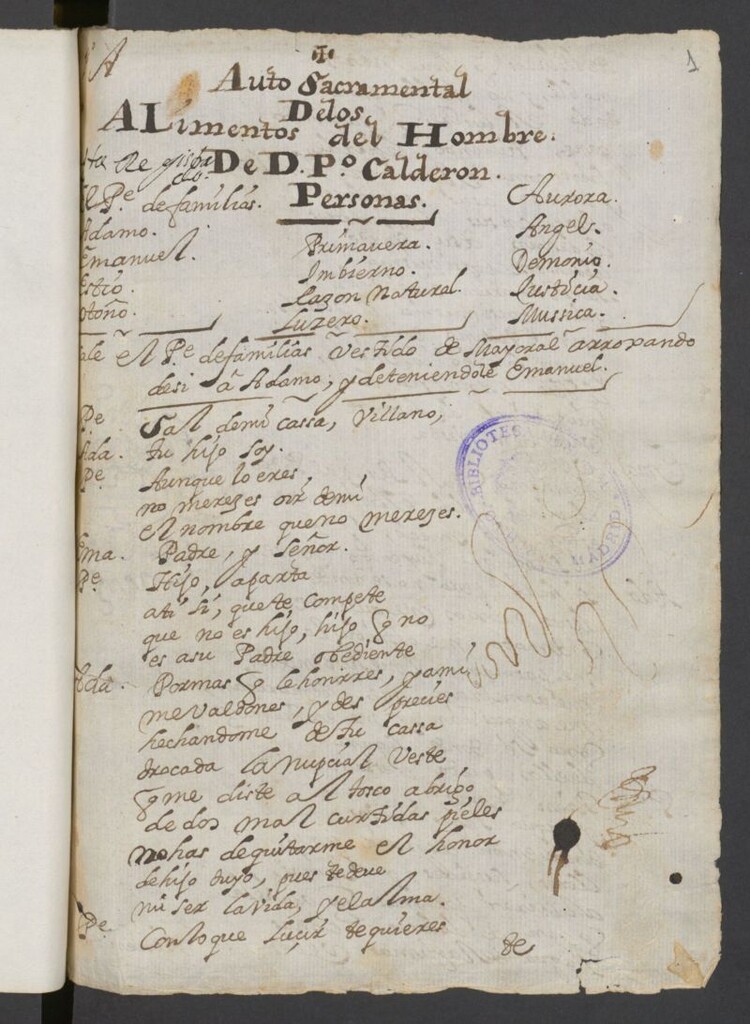 A
1
Auto Sacramental
Delos
ALimentos del Hombre.
De D. P.º Calderon.
Personas.
El P.e de familias.
Adamo.
Emanuel.
Estio.
Otoño.
Primavera.
Imbierno.
Razon Natural.
Luzero.
Aurora.
Angel.
Demonio.
Justicia.
Mussica.
Sale el P.e de familias Vestido de Mayoral arroxando
desi â Adamo, y deteniendole Emanuel.
P.e Sal demi cassa, Villano,
Ada. tu hijo soy.
P.e Aunque lo eres,
no merezes oir demi
el nombre que no merezes.
Ema. Padre, y Señor.
P.e Hijo, aparta
ati si, que te compete
que no es hijo, hijo q no
es asu Padre obediente
Ada. Pormas q le honrres, y ami
me valdones, y des precies
hechandome de tu cassa
trocada la nupcial Veste
q me diste al tosco abrigo
de dos mal curtidas pieles
no has de quitarme el honor
de hijo tuyo, pues te deve
mi ser la vida, y el alma.
P.e Con lo que lucir te quieres
de
BIBLIOTECA
MADRID